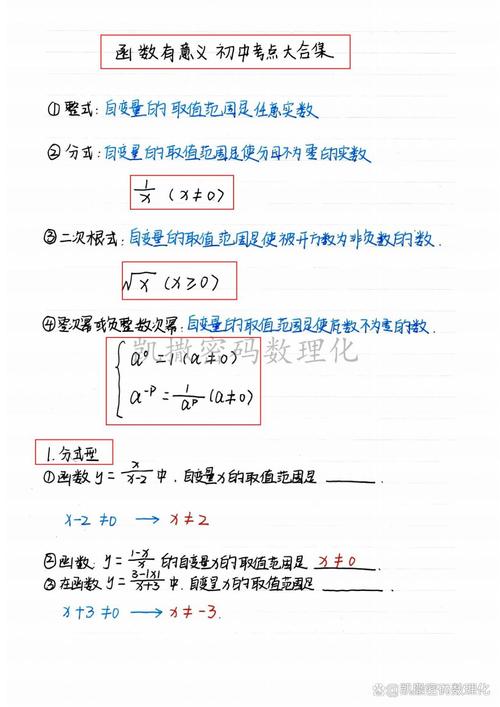 函数有意义初中考点大合集
①整式:自变量的取值范围是任意实数
②分式:自变量的取值范围是使分母不为零的实数
1/x (x≠0)
③二次根式:自变量的取值范围是使被开方数为非负数的数.
√x (x≥0)
④零次幂或负整数次幂:自变量的取值范围是使底数不为零的数.
凯撒密码数理化
a⁰=1(a≠0)
a⁻ᵖ=1/aᵖ(a≠0)
1.分式型
①函数y=x/(x-2)中,自变量x的取值范围是______.
x-2≠0 → x≠2
②函数y=(1-x)/x的自变量x的取值范围是 x≠0 .
③在函数y=(3-|x|)/(x+3)中,自变量x的取值范围是______
x+3≠0 → x≠-3.
@凯撒密码数理化